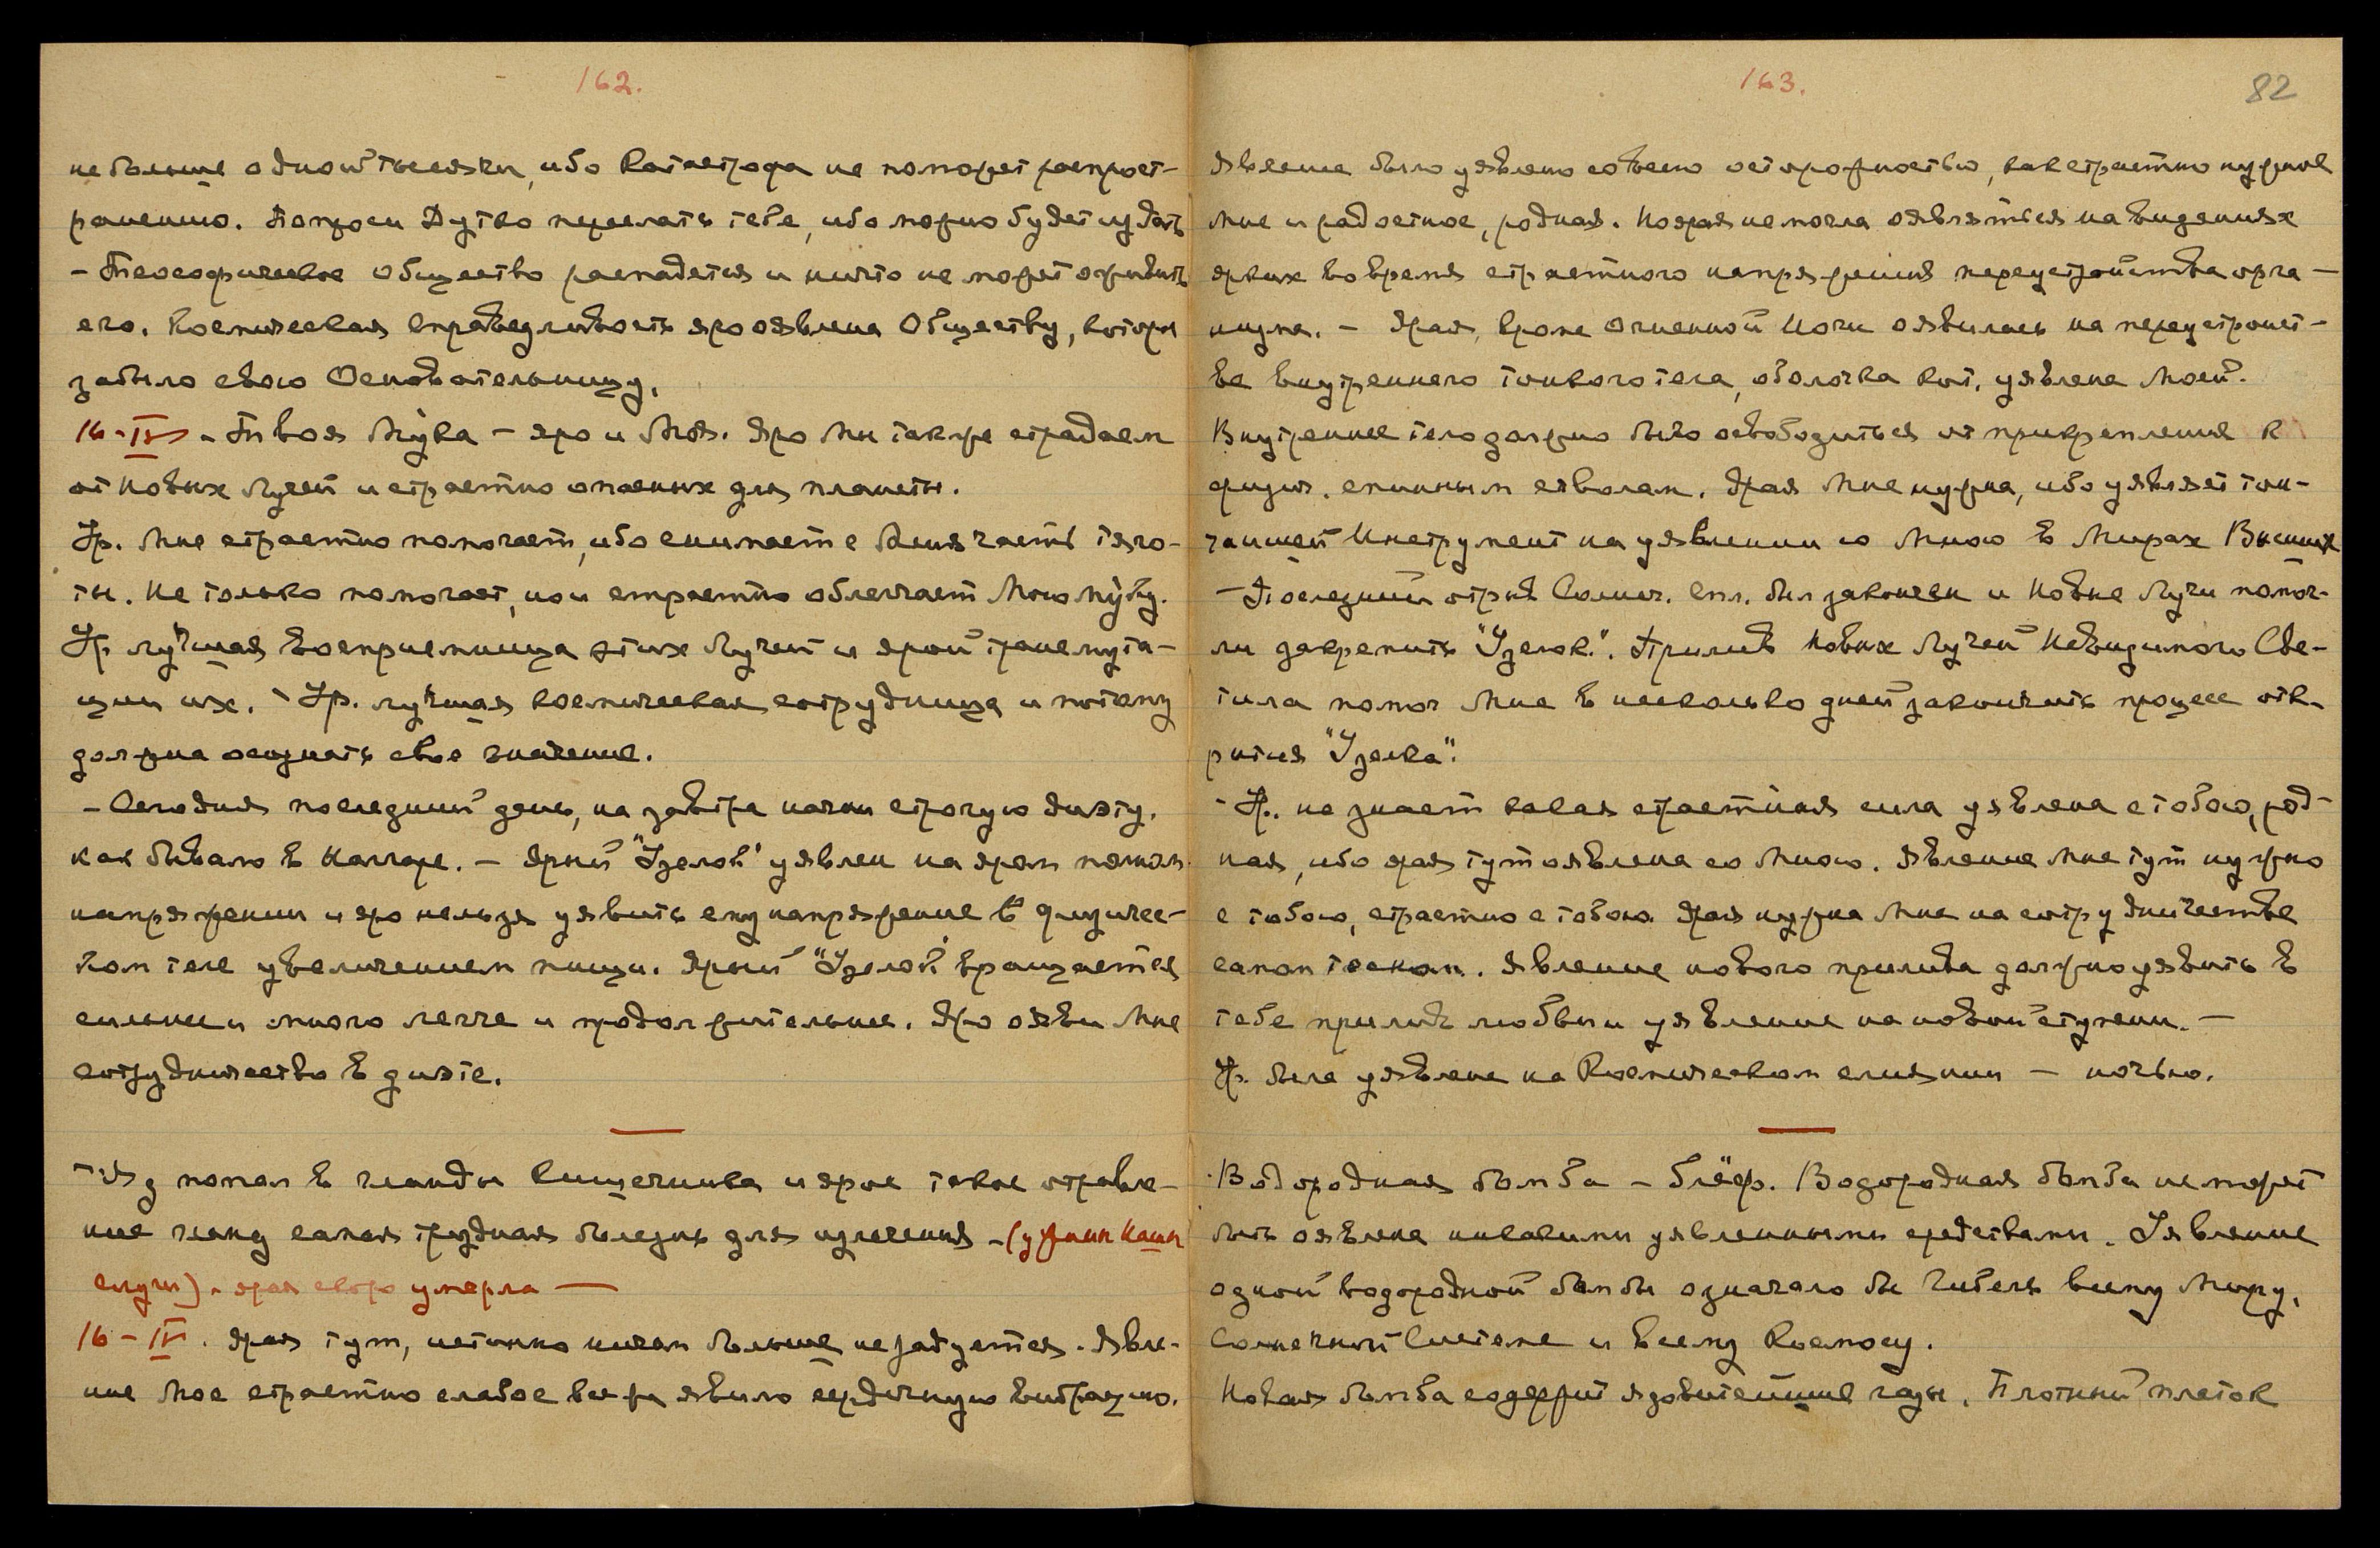 162.
не больше одной тысячи, ибо катастрофа не поможет распрост-
ранению. Попроси Дутко переслать тебе, ибо можно будет издать
- Теософическое Общество распадется и никто не может оживить
его. Космическая Справедливость яро оявлена Обществу, которое
забыло свою Основательницу.
16-IV - Твоя Мука - яро и Моя. Яро Мы также страдаем
от Новых Лучей и страстно опасных для планеты.
Ур. Мне страстно помогает, ибо снимает с Меня часть тяго-
ты. Не только помогает, но и страстно облегчает Мою муку.
Ур лучшая восприемница этих Лучей и ярой трансмута-
ции их. - Ур. лучшая космическая сотрудница и потому
должна осознать свое значение.
- Сегодня последний день, на завтра начни строгую диэту.
как бывало в Наггаре. - Ярый "Узелок" уявлен на яром новом
напряжении и яро нельзя уявить ему напряжение в физичес-
ком теле увеличением пищи. Ярый "Узелок" вращается
сильнее и много легче и продолжительнее. Яро ояви Мне
сотрудничество в диэте.
- Яд попал в гланды кишечника и ярое такое отравле-
ние самая трудная болезнь для излечения - (у жены Наши
слуги). ярая скоро умерла —
16 - IV. Ярая тут, истинно ничем больше не задуется. Явле-
ние Мое страстно слабое все же явило сердечную вибрацию.
163.
82
Явление было уявлено со всею осторожностью, как страстно нужное
Мне и радостное, родная. Но ярая не могла оявляться на видениях
ярких во время страстного напряжения переустройства орга-
низма. - Ярая, кроме Огненной Ночи оявилась на переустройст-
ве внутреннего тонкого тела, оболочка кот. уявлена Моей.
Внутреннее тело должно было освободиться от прикрепления к
физич. спинным стволам. Ярая Мне нужна, ибо уявляет тон-
чайший Инструмент на уявлении со Мною в Мирах Высших
- Последний отрыв Солнеч. Спл. был закончен и Новые Лучи помог-
ли закрепить "Узелок". Прилив Новых Лучей Невидимого Све-
тила помог Мне в несколько дней закончить процесс отк-
рытия "Узелка".
- Ур. не знает какая страстная сила уявлена с тобою, род-
ная, ибо ярая тут оявлена со Мною. Явление Мне тут нужно
с тобою, страстно с тобою. Ярая нужна Мне на сотрудничестве
самом тесном. Явление нового прилива должно уявить в
тебе прилив любви и уявление на новой ступени. -
Ур. была уявлена на Космическом слиянии - ночью.
Водородная бомба - блёф. Водородная бомба не может
быть оявлена никакими уявленными средствами. Уявление
одной водородной бомбы означало бы Гибель всему Миру,
Солнечной Системе и всему Космосу.
Новая бомба содержит ядовитейшие газы. Плотный платок